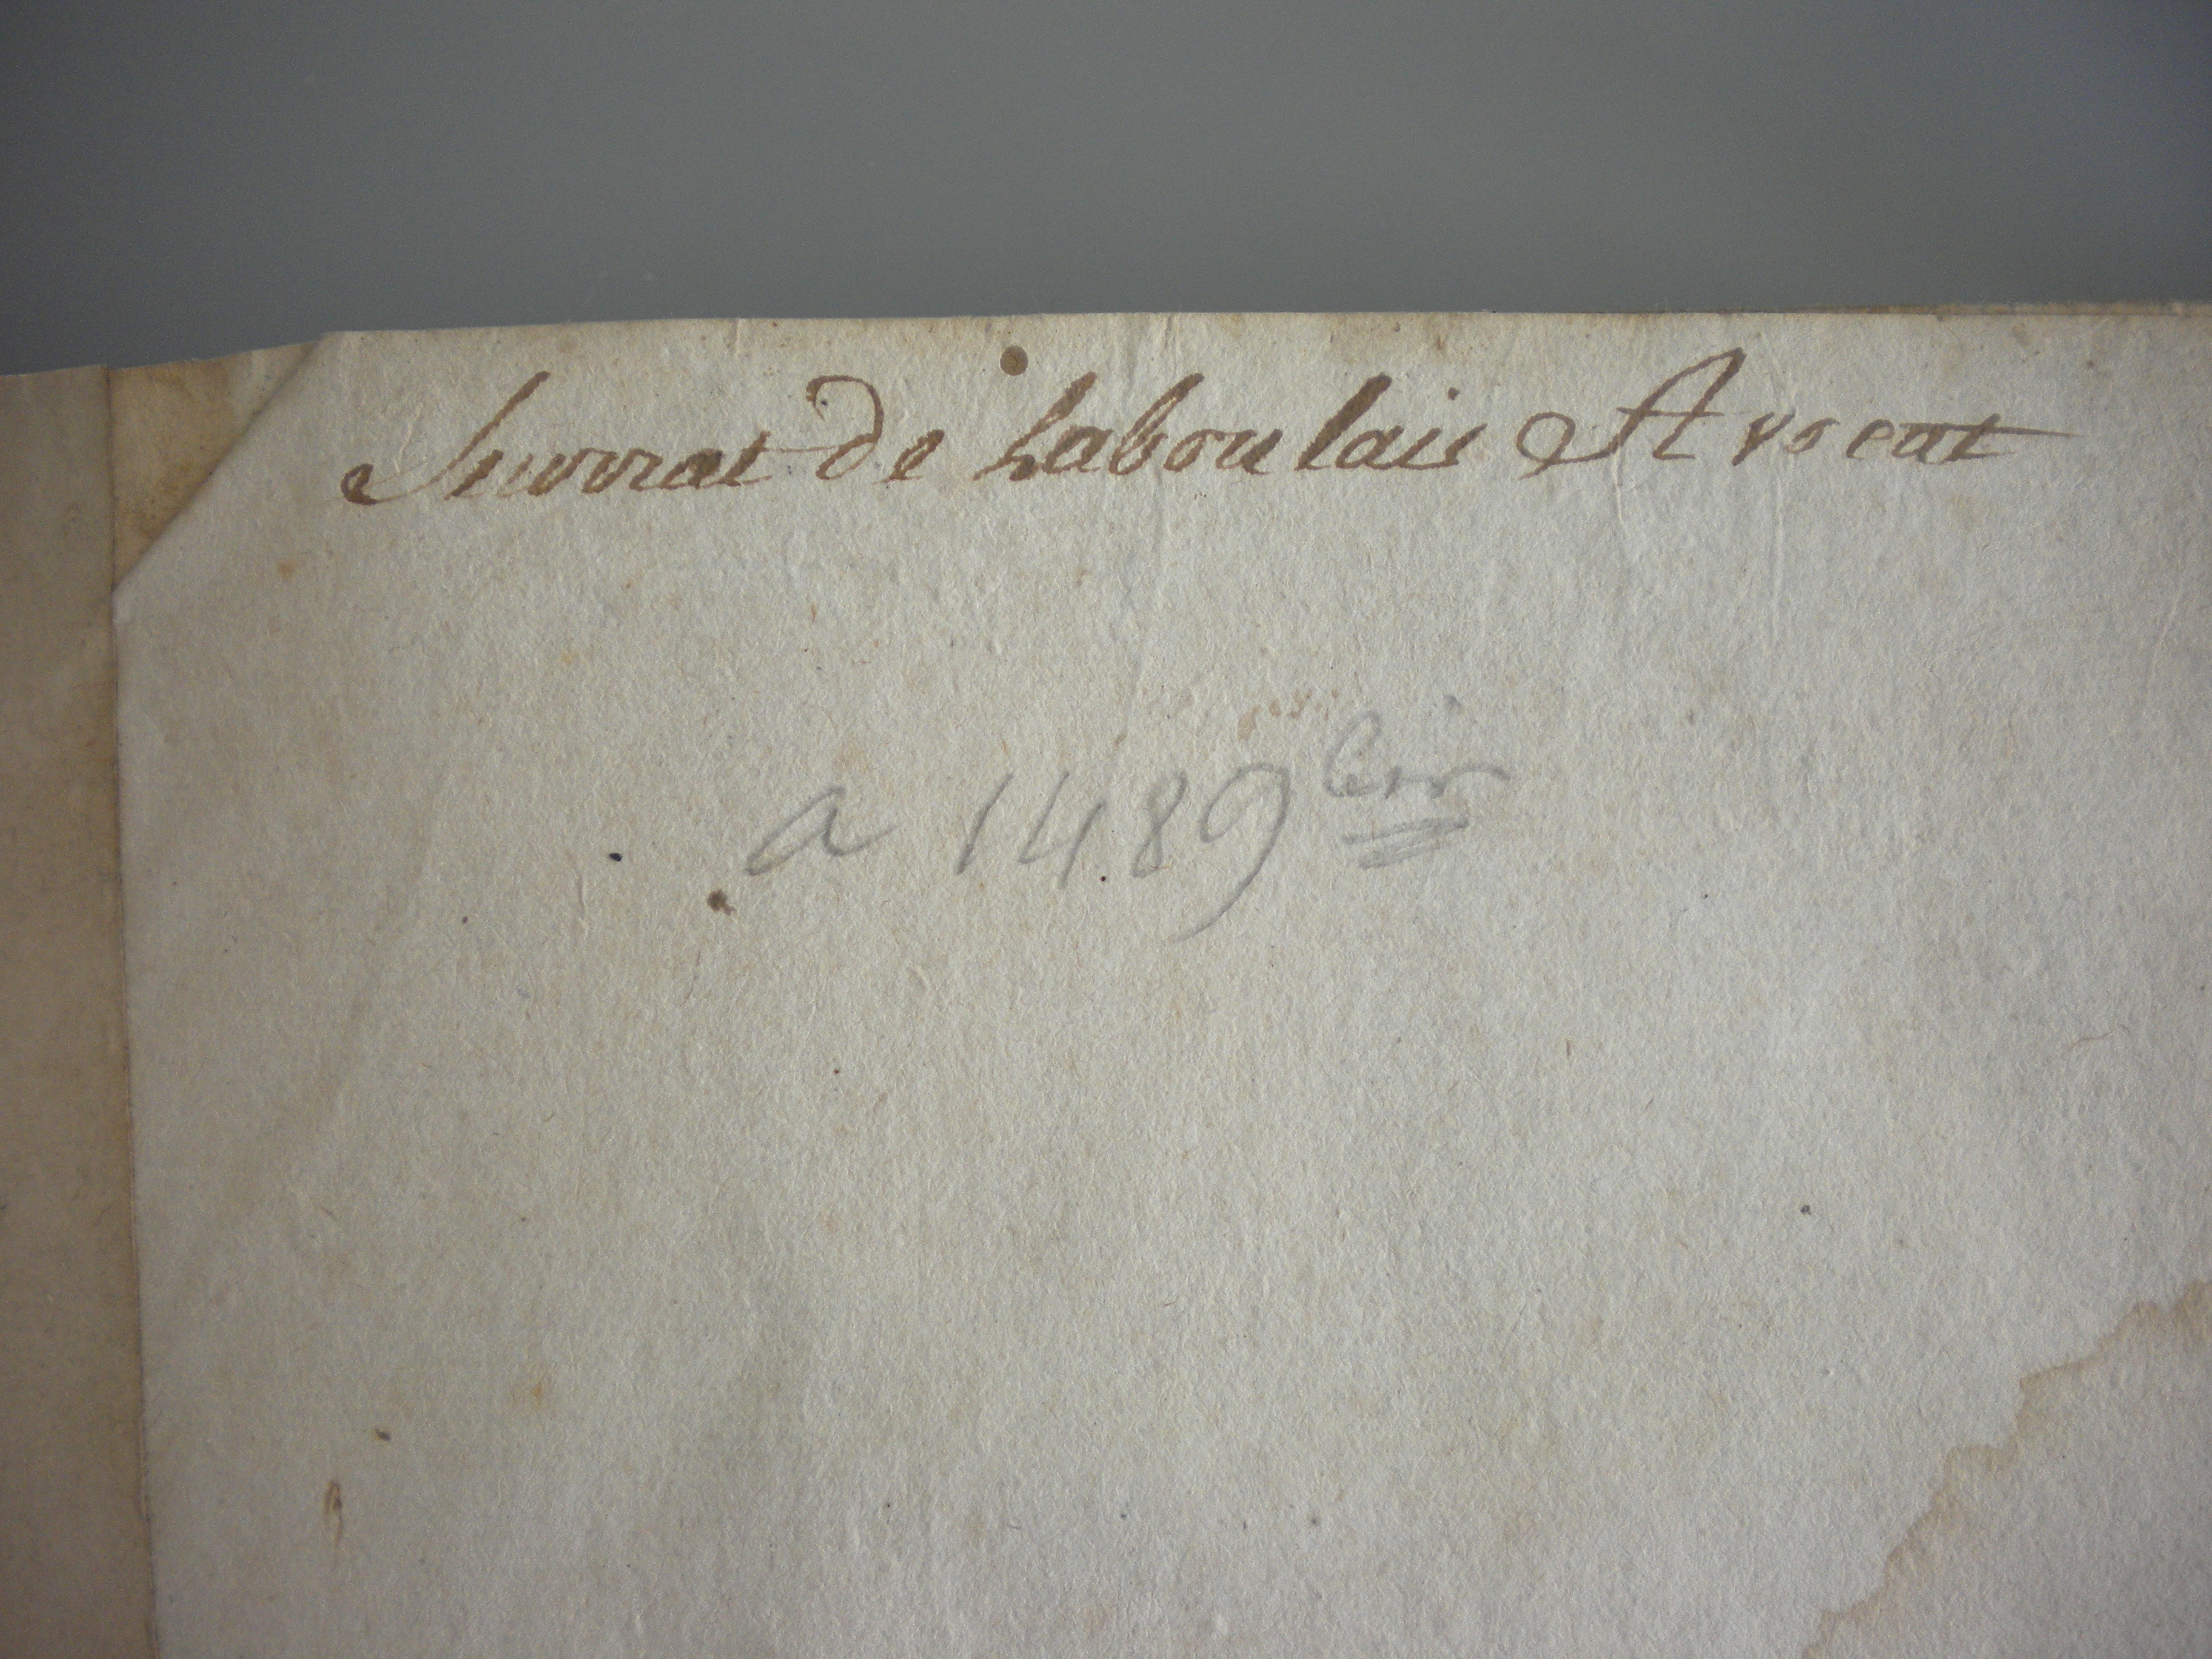 Suvorrat de Laboulais Avocat
a 1489 ter